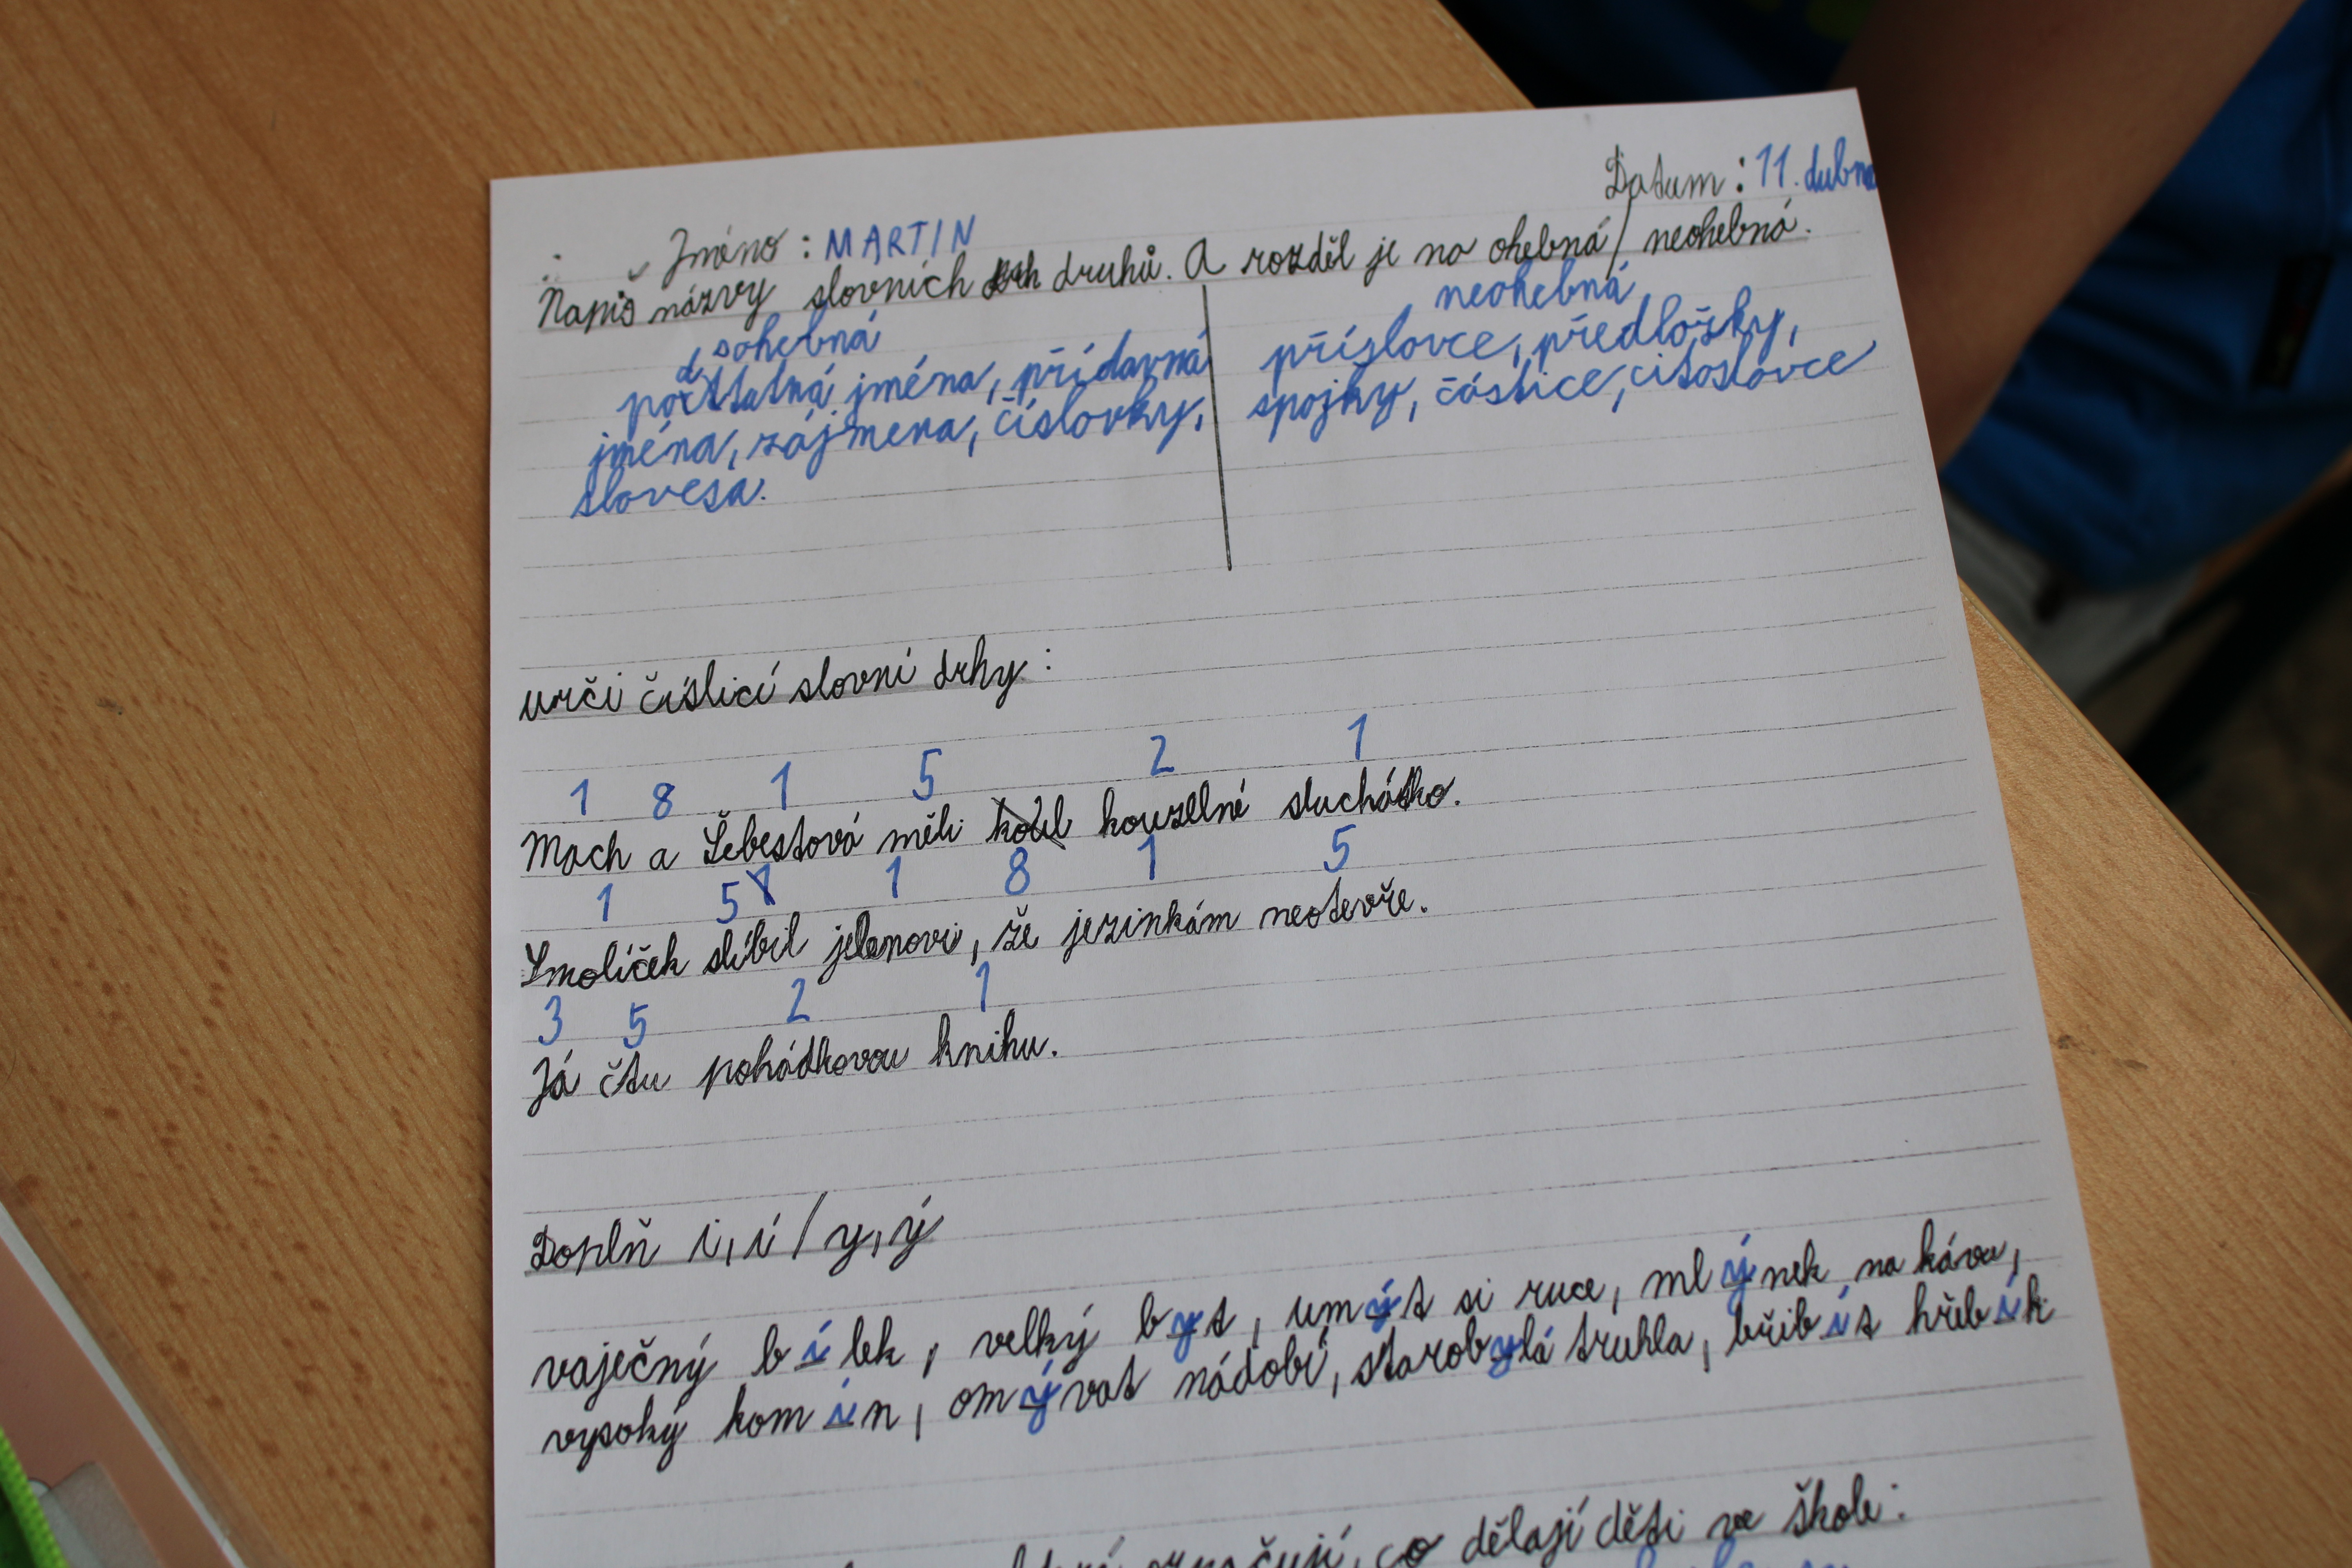 Datum: 11. dubna
Jméno: MARTIN
Napiš názvy slovních druhů. A rozděl je na ohebná/neohebná.
ohebná
neohebná
podstatná jména, přídavná
jména, zájmena, číslovky,
slovesa.
příslovce, předložky,
spojky, částice, citoslovce
urči číslicí slovní drhy:
1 8 1 5 2 1
Mach a Šebestová měli kouzelné sluchátko.
1 5 1 8 1 5
Smolíček slíbil jelenovi, že jezinkám neotevře.
3 5 2 1
Já čtu pohádkovou knihu.
Doplň i, í / y, ý
vaječný bílek, velký byt, umýt si ruce, mlýnek na kávu,
vysoký komín, omývat nádobí, starobylá truhla, hřbit hřebík
označují, co dělají děti ve škole: